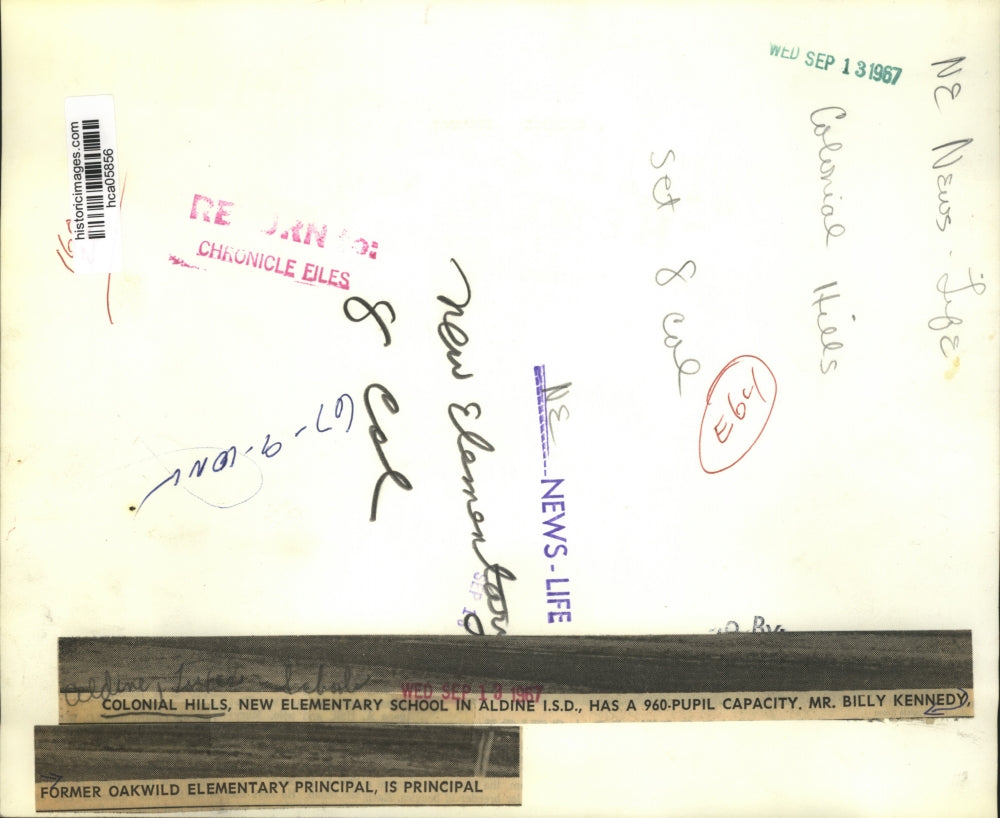 WED SEP 13 1967
NE News-Life
Colonial Hills
set 8 col
E64
historicimages.com
hca05856
CHRONICLE FILES
8 Col
New Elementary
67-9-
NE NEWS-LIFE
SEP
By:
Aldine,
WED SEP 13 1967
COLONIAL HILLS, NEW ELEMENTARY SCHOOL IN ALDINE I.S.D., HAS A 960-PUPIL CAPACITY. MR. BILLY KENNEDY,
FORMER OAKWILD ELEMENTARY PRINCIPAL, IS PRINCIPAL